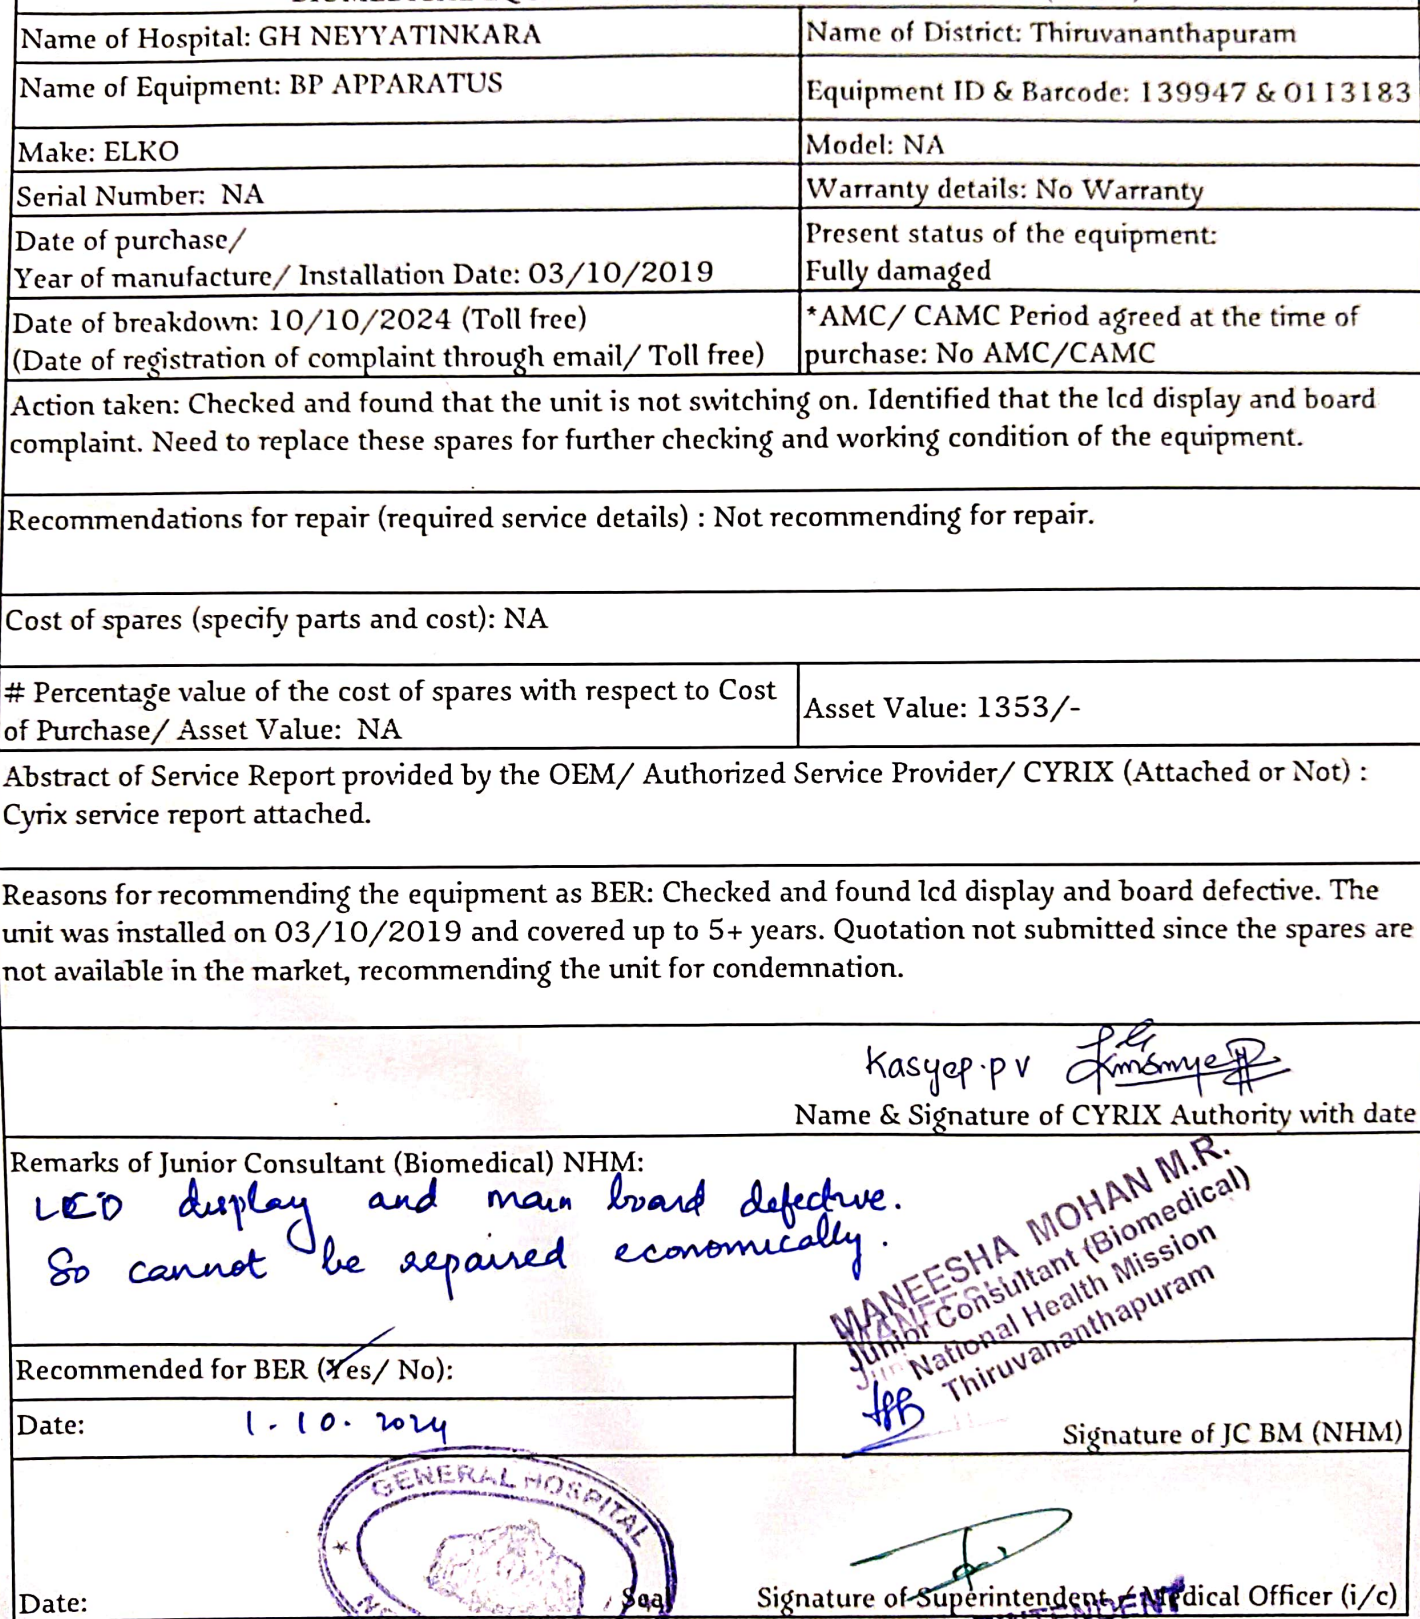 Name of Hospital: GH NEYYATINKARA
Name of District: Thiruvananthapuram
Name of Equipment: BP APPARATUS
Equipment ID & Barcode: 139947 & 0113183
Make: ELKO
Model: NA
Serial Number: NA
Warranty details: No Warranty
Date of purchase/
Year of manufacture/ Installation Date: 03/10/2019
Present status of the equipment:
Fully damaged
Date of breakdown: 10/10/2024 (Toll free)
(Date of registration of complaint through email/ Toll free)
*AMC/ CAMC Period agreed at the time of
purchase: No AMC/CAMC
Action taken: Checked and found that the unit is not switching on. Identified that the lcd display and board
complaint. Need to replace these spares for further checking and working condition of the equipment.
Recommendations for repair (required service details) : Not recommending for repair.
Cost of spares (specify parts and cost): NA
# Percentage value of the cost of spares with respect to Cost
of Purchase/ Asset Value: NA
Asset Value: 1353/-
Abstract of Service Report provided by the OEM/ Authorized Service Provider/ CYRIX (Attached or Not) :
Cyrix service report attached.
Reasons for recommending the equipment as BER: Checked and found lcd display and board defective. The
unit was installed on 03/10/2019 and covered up to 5+ years. Quotation not submitted since the spares are
not available in the market, recommending the unit for condemnation.
Kasyep.pv
Name & Signature of CYRIX Authority with date
Remarks of Junior Consultant (Biomedical) NHM:
LCD display and main board defective.
So cannot be repaired economically.
MANEESHA MOHAN M.R.
Junior Consultant (Biomedical)
National Health Mission
Thiruvananthapuram
Recommended for BER (Yes/ No):
Date: 1.10.2024
Signature of JC BM (NHM)
GENERAL HOSPITAL
Date:
Seal
Signature of Superintendent / Medical Officer (i/c)